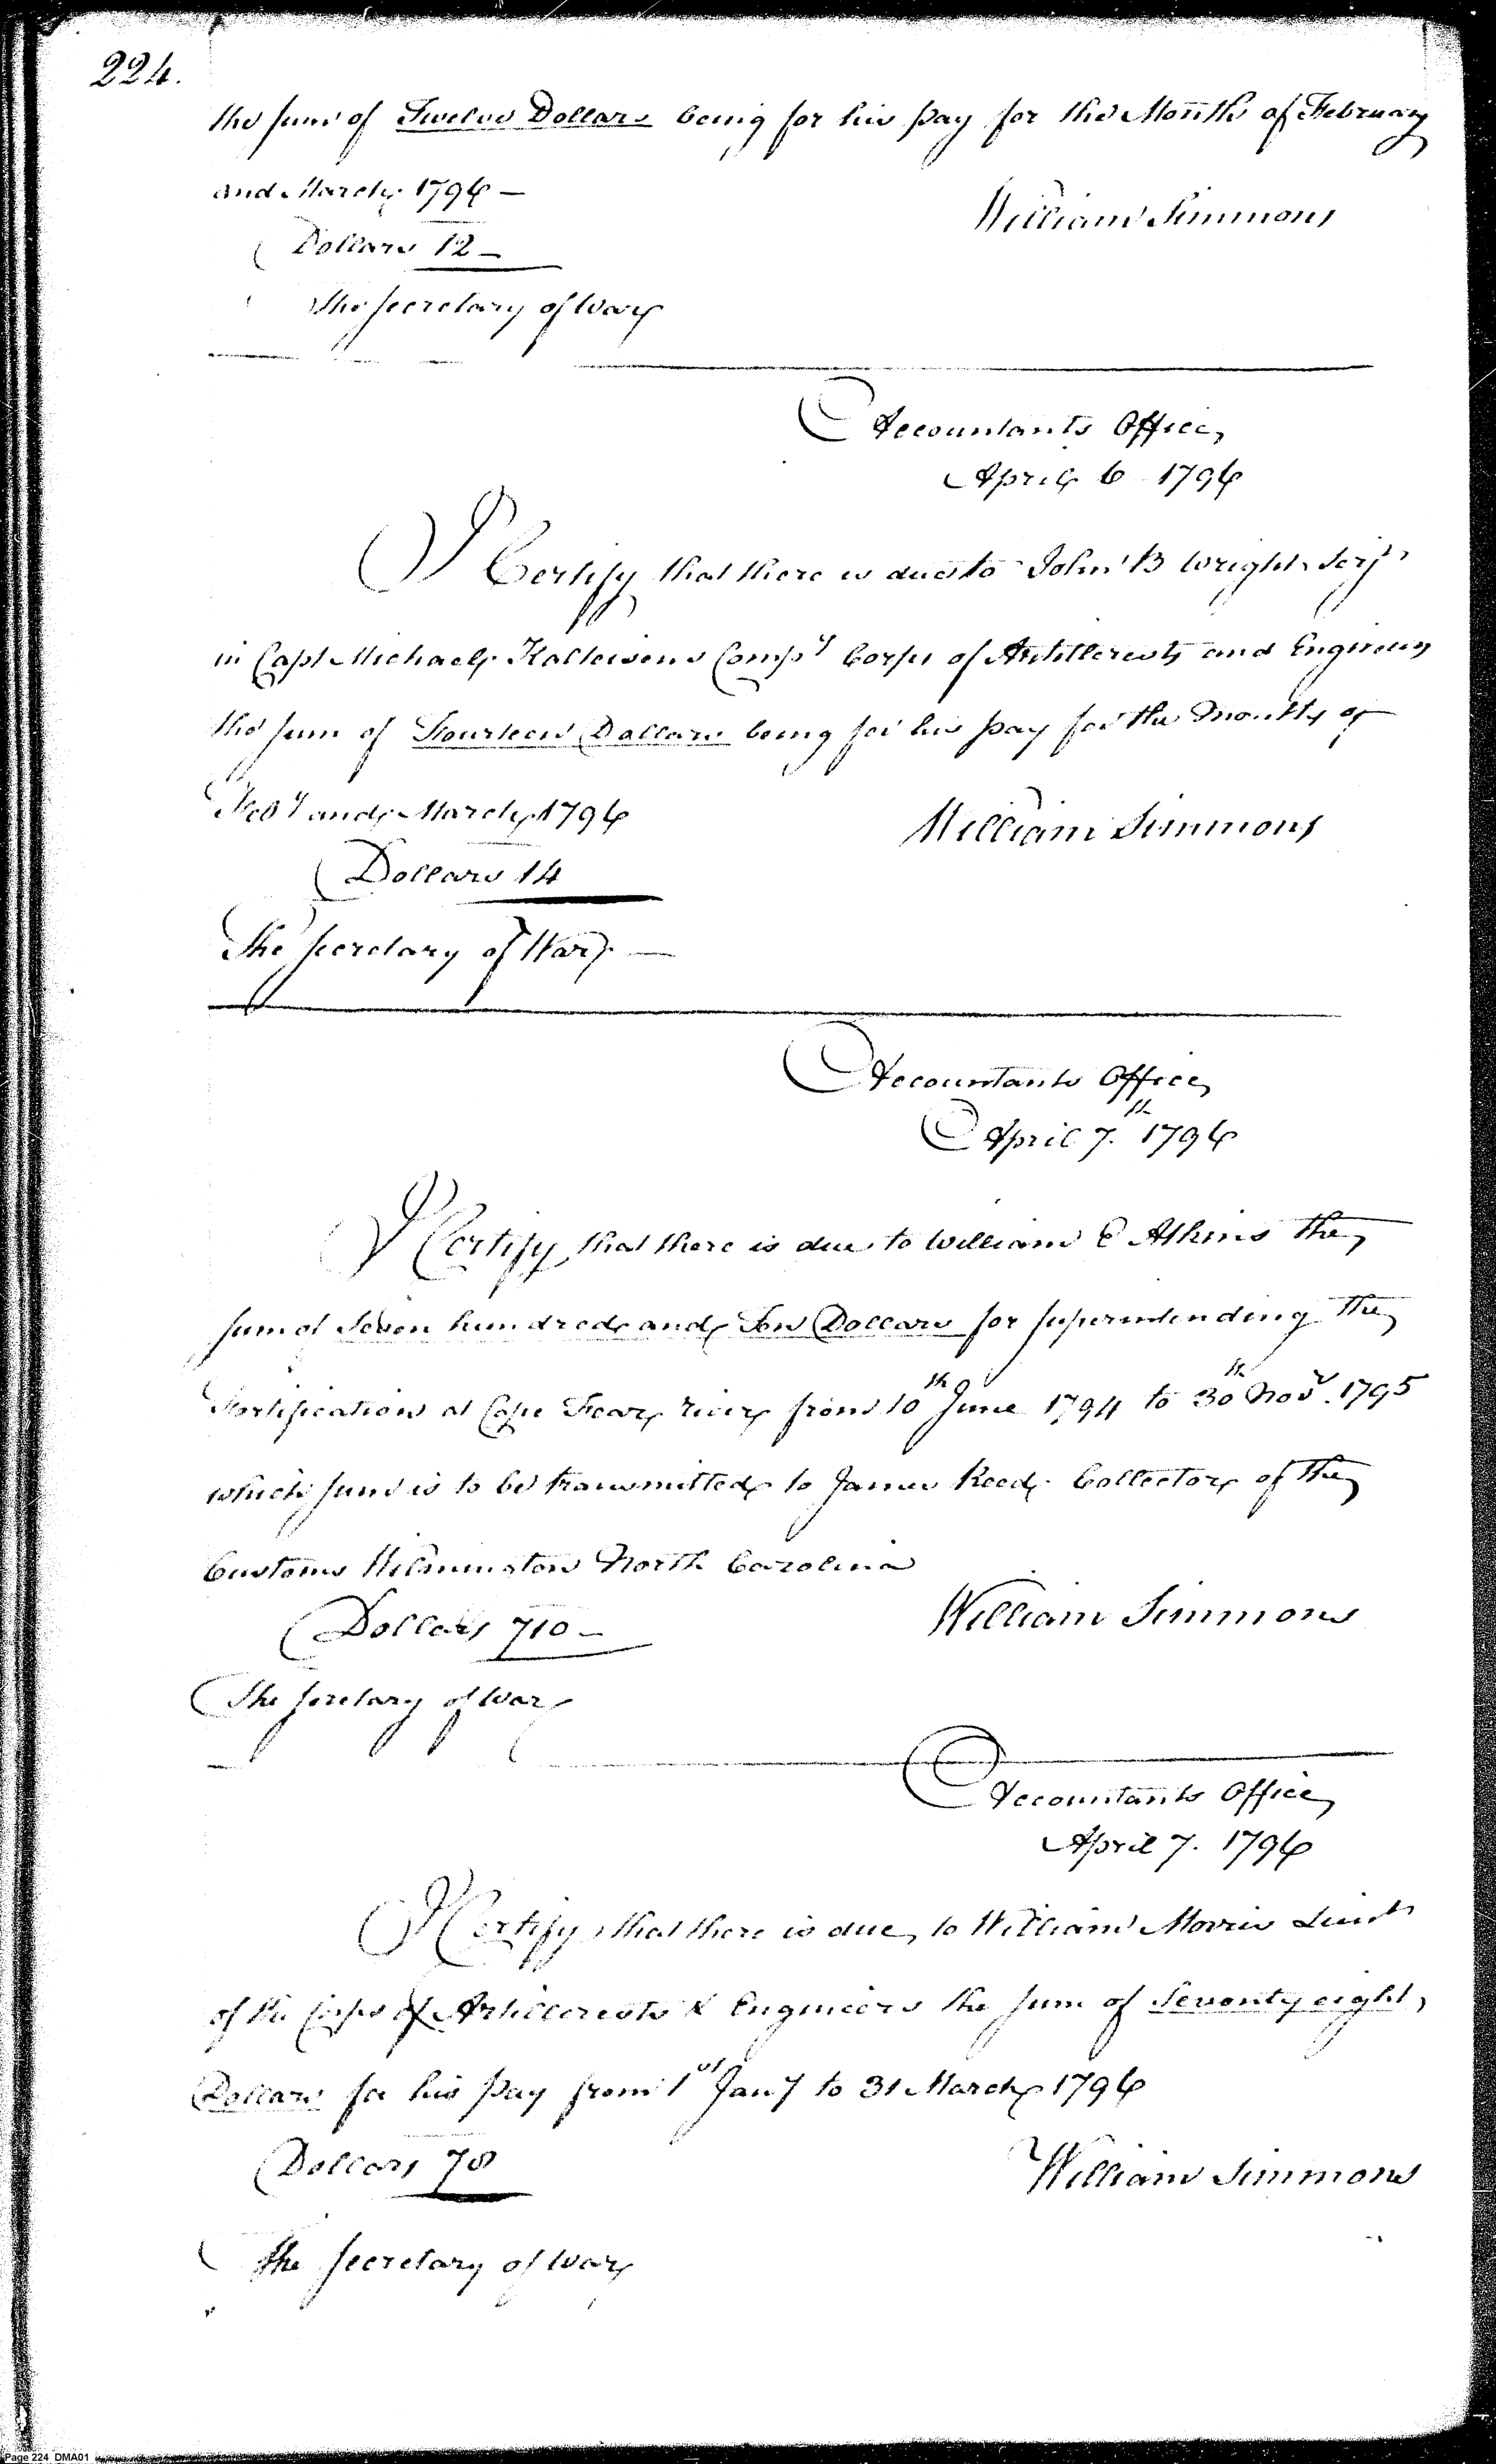 224.
the sum of Twelve Dollars being for his pay for the Months of February
and March 1796 —
William Simmons
Dollars 12 —
The Secretary of War
Accountants Office
April 6 1796
I Certify that there is due to John B Wright Serjt
in Capt Michael Kalteisens Compy Corps of Artillerests and Engineers
the sum of Fourteen Dollars being for his pay for the Months of
Feby and March 1796
William Simmons
Dollars 14
The Secretary of War —
Accountants Office
April 7th 1796
I Certify that there is due to William E Atkins the
sum of Seven hundred and Ten Dollars for superintending the
Fortification at Cape Fear river from 10th June 1794 to 30th Novr. 1795
which sum is to be transmitted to James Reed Collector of the
Customs Wilmington North Carolina
William Simmons
Dollars 710 —
The Secretary of War
Accountants Office
April 7. 1796
I Certify that there is due to William Morris Lieut
of the Corps of Artillerests & Engineers the sum of Seventy eight
Dollars for his pay from 1st Jany to 31 March 1796
Dollars 78
William Simmons
the Secretary of War
Page 224 DMA01